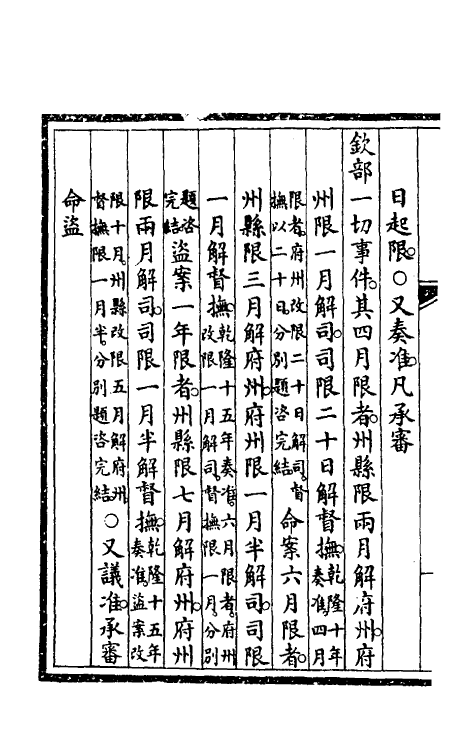 日起限。○又奏准。凡承審
欽部一切事件。其四月限者。州縣限兩月解府州。府
州限一月解司。司限二十日解督撫。乾隆十年奏准。四月
限者。府州改限二十日解司。督撫以二十日分別題咨完結 命案六月限者。
州縣限三月解府州。府州限一月半解司。司限
一月解督撫。乾隆十五年奏准。六月限者。府州改限一月解司。督撫限一月。分別
題咨完結 盜案一年限者。州縣限七月解府州。府州
限兩月解司。司限一月半解督撫。乾隆十五年奏准。盜案改
限十月。州縣改限五月解府州督撫限一月半。分別題咨完結 ○又議准。承審
命盜